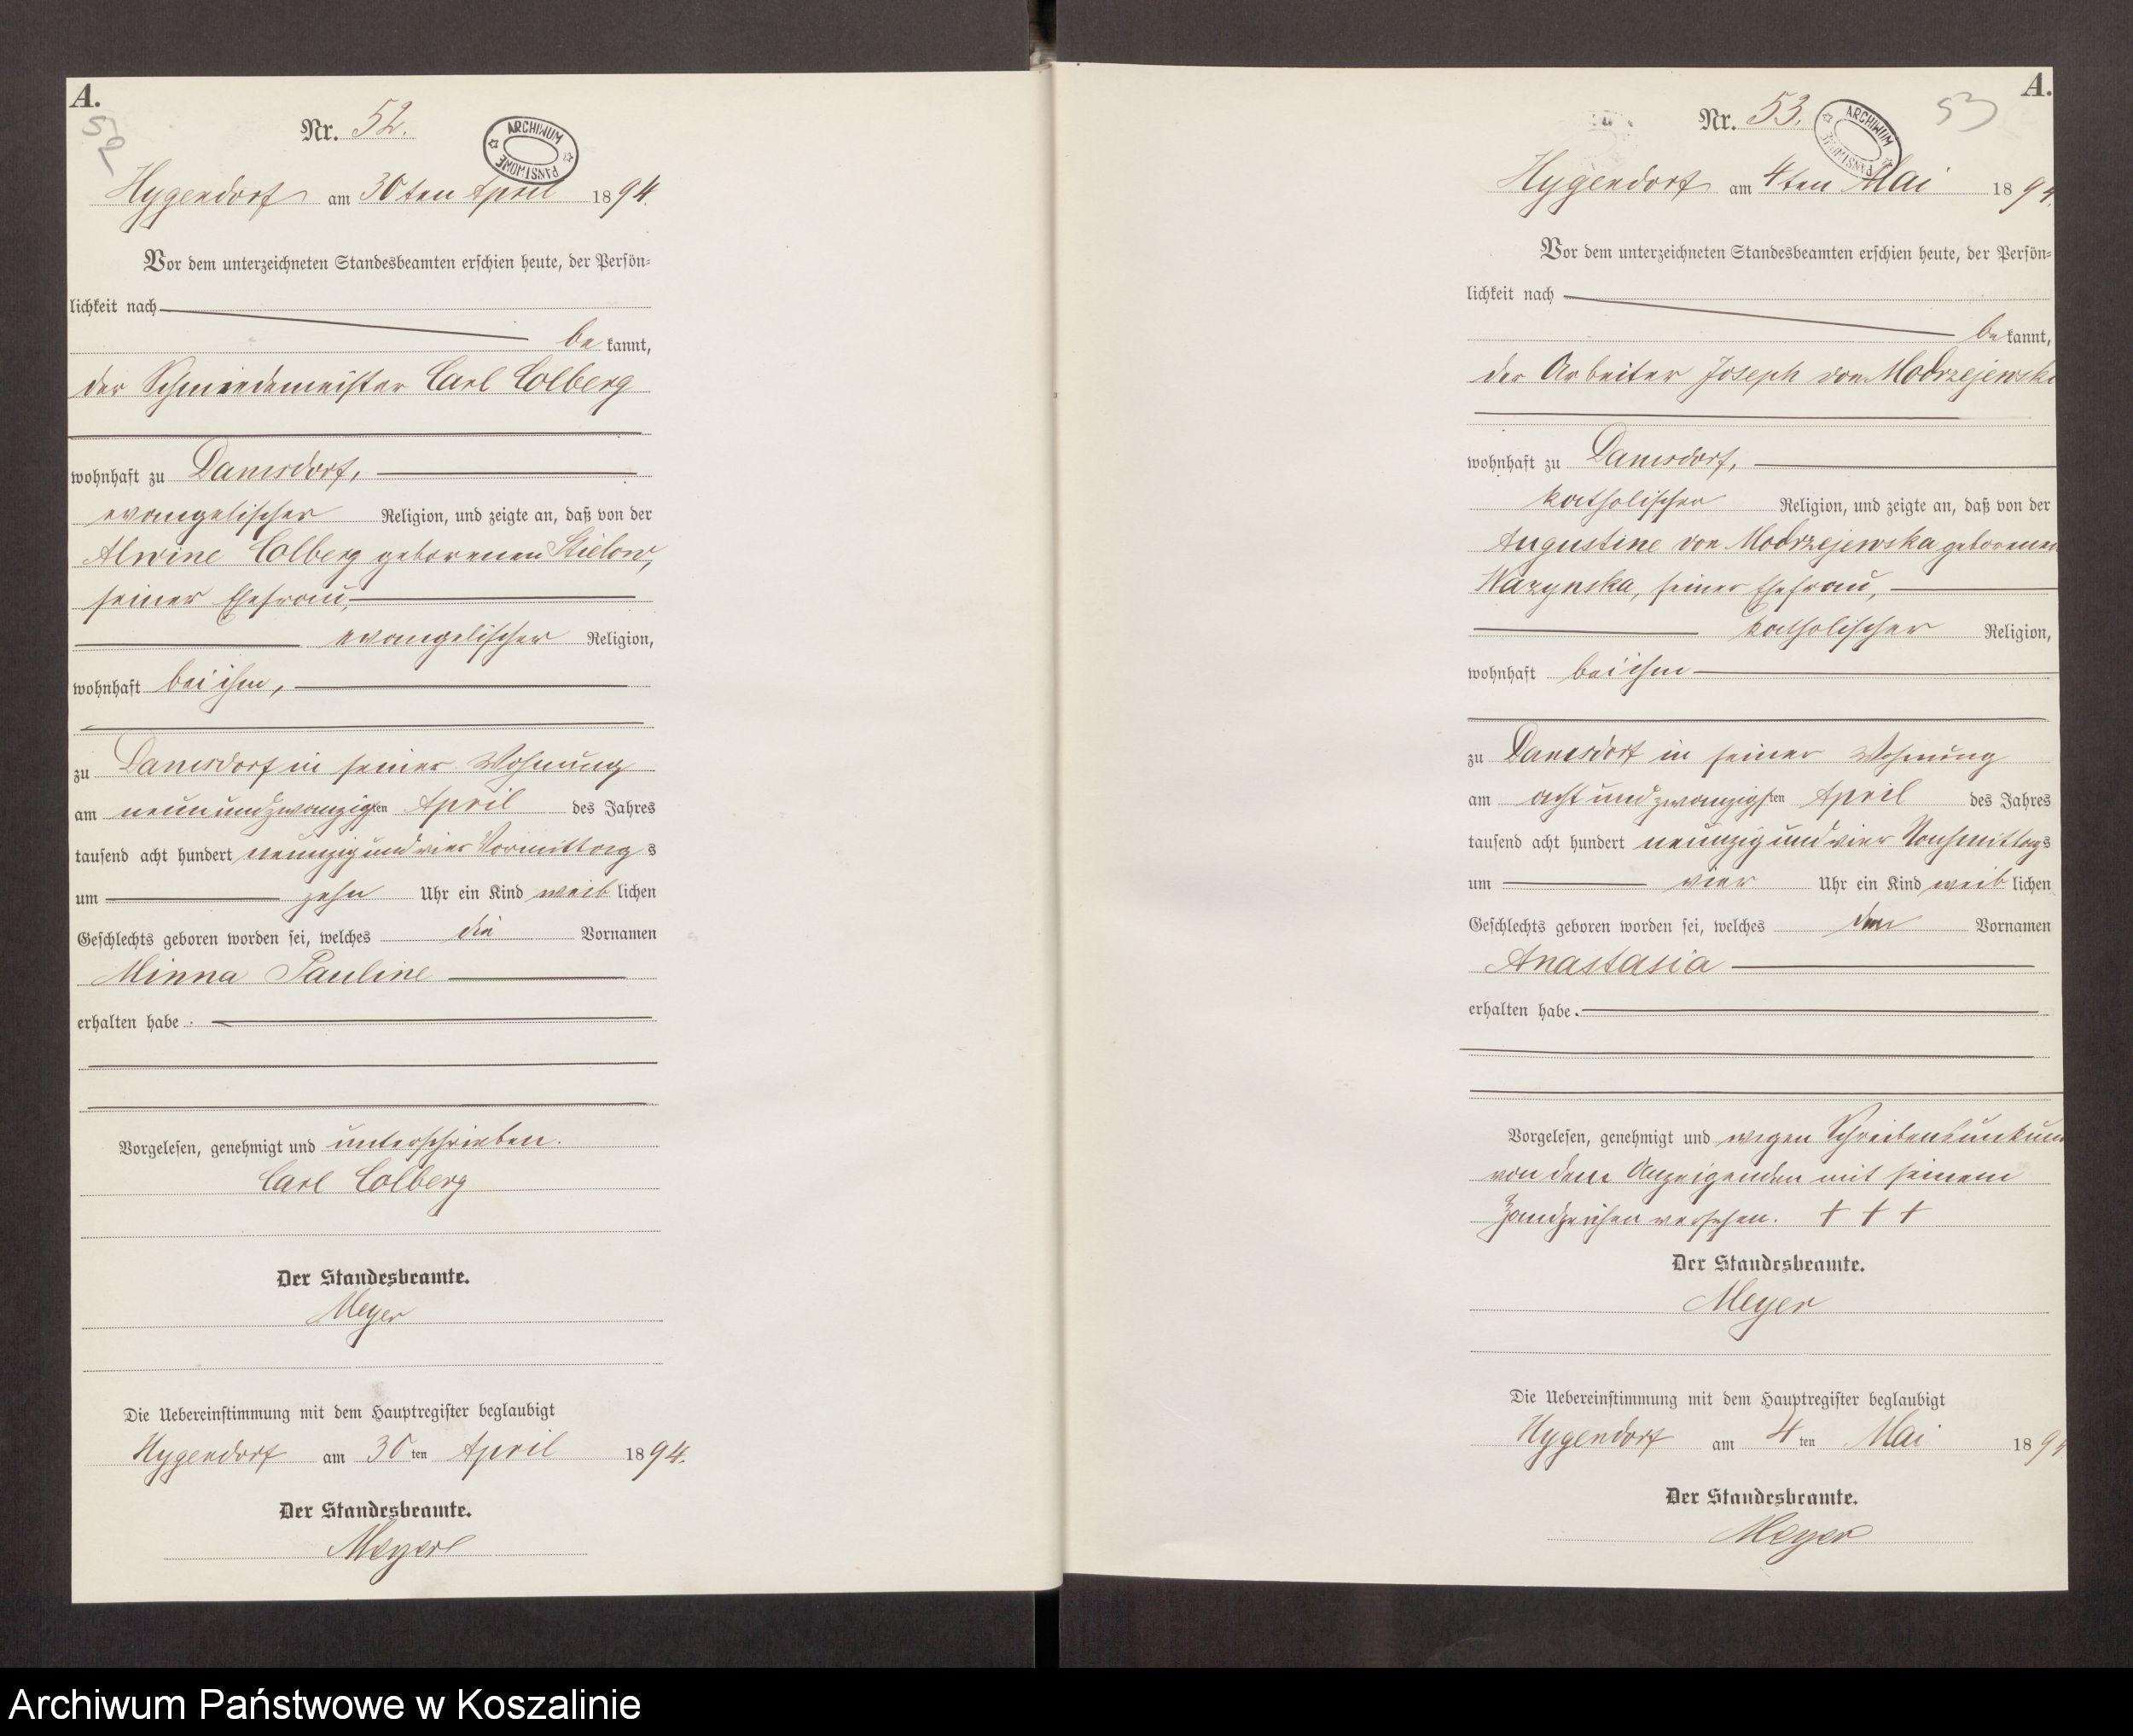 A.
52
Nr. 52.
ARCHIWUM PAŃSTWOWE
Hygendorf am 30ten April 1894.
Vor dem unterzeichneten Standesbeamten erschien heute, der Persön-
lichkeit nach
be kannt,
der Schmiedemeister Carl Colberg
wohnhaft zu Damsdorf,
evangelischer Religion, und zeigte an, daß von der
Alwine Colberg geborenen Stielow,
seiner Ehefrau,
evangelischer Religion,
wohnhaft bei ihm,
zu Damsdorf in seiner Wohnung
am neunundzwanzigsten April des Jahres
tausend acht hundert neunzig und vier Vormittags
um zehn Uhr ein Kind weiblichen
Geschlechts geboren worden sei, welches die Vornamen
Minna Pauline
erhalten habe.
Vorgelesen, genehmigt und unterschrieben.
Carl Colberg
Der Standesbeamte.
Meyer
Die Uebereinstimmung mit dem Hauptregister beglaubigt
Hygendorf am 30ten April 1894.
Der Standesbeamte.
Meyer
A.
53
Nr. 53.
ARCHIWUM PAŃSTWOWE
Hygendorf am 4ten Mai 1894.
Vor dem unterzeichneten Standesbeamten erschien heute, der Persön-
lichkeit nach
be kannt,
der Arbeiter Joseph von Modrzejewski
wohnhaft zu Damsdorf,
katholischer Religion, und zeigte an, daß von der
Augustine von Modrzejewska geborenen
Wazynska, seiner Ehefrau,
katholischer Religion,
wohnhaft bei ihm
zu Damsdorf in seiner Wohnung
am acht und zwanzigsten April des Jahres
tausend acht hundert neunzig und vier Nachmittags
um vier Uhr ein Kind weiblichen
Geschlechts geboren worden sei, welches den Vornamen
Anastasia
erhalten habe.
Vorgelesen, genehmigt und wegen Schreibensunkun
von dem Anzeigenden mit seinem
Handzeichen versehen. † † †
Der Standesbeamte.
Meyer
Die Uebereinstimmung mit dem Hauptregister beglaubigt
Hygendorf am 4ten Mai 1894
Der Standesbeamte.
Meyer
Archiwum Państwowe w Koszalinie